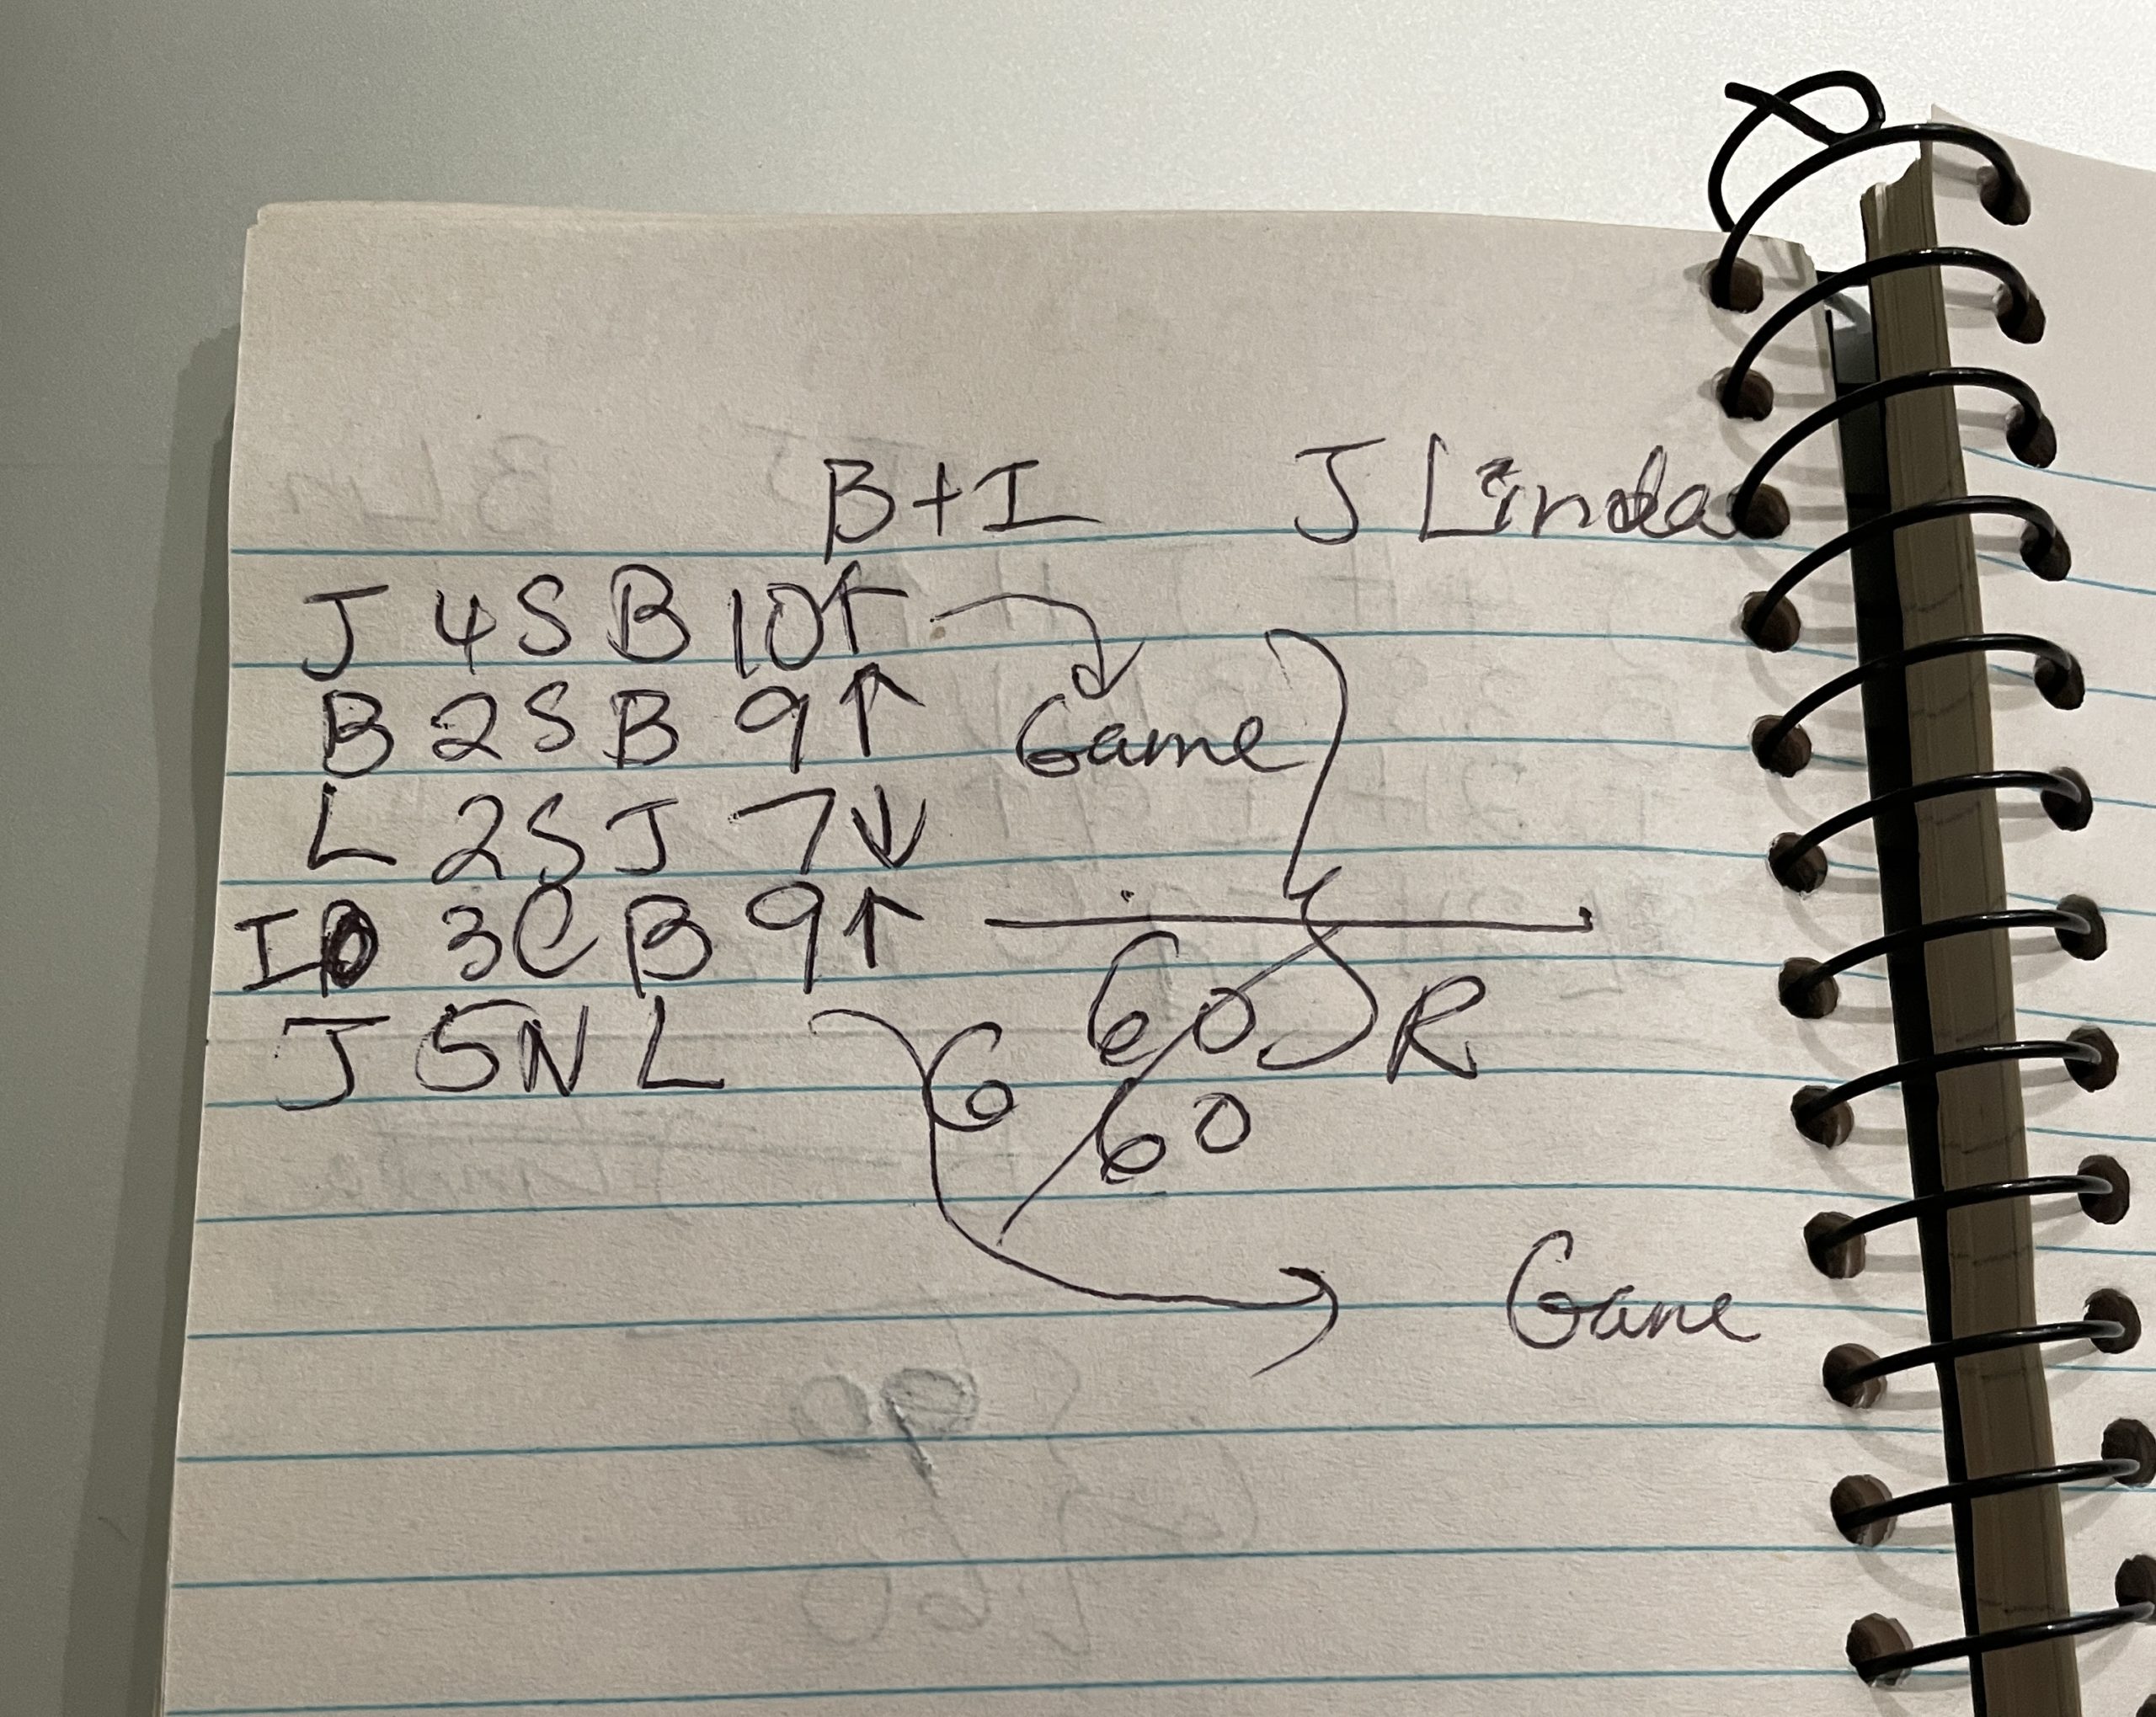 B+I J Linda
J 4S B 10↑
B 2S B 9↑ Game
L 2S J 7↓
I 3C B 9↑
J 5N L 6 60 R
60
Game